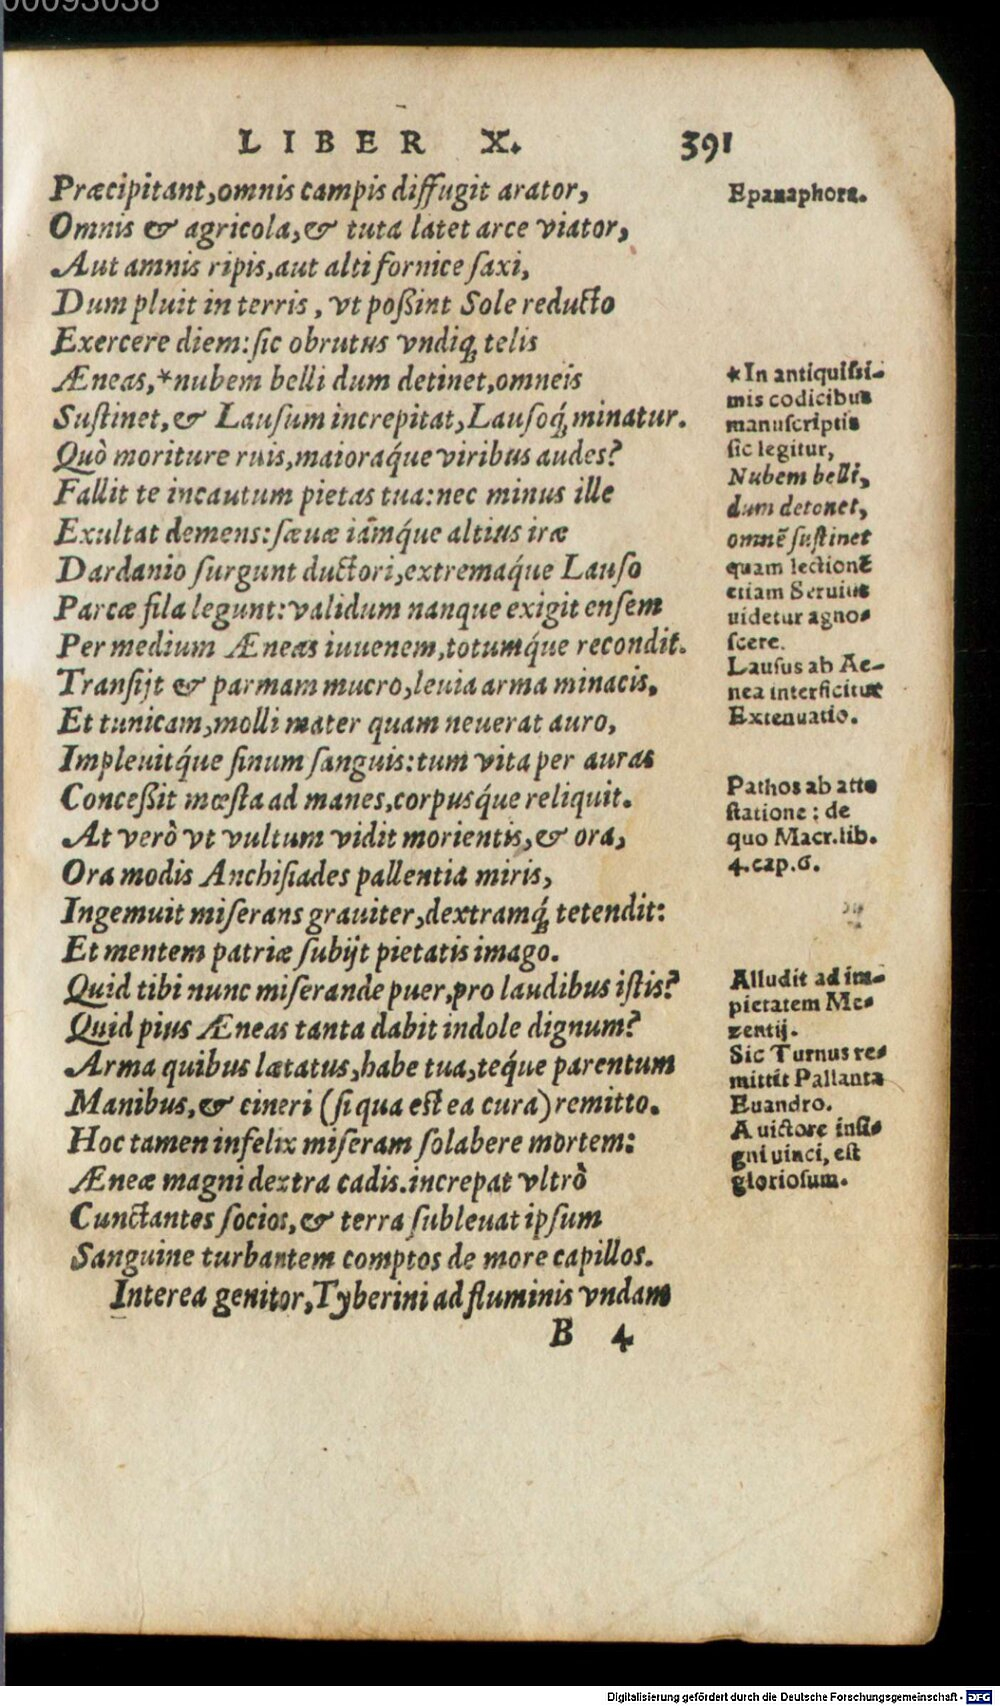 00093038
LIBER X. 391
Præcipitant, omnis campis diffugit arator,
Omnis & agricola, & tuta latet arce viator,
Aut amnis ripis, aut alti fornice ſaxi,
Dum pluit in terris, vt poßint Sole reducto
Exercere diem: ſic obrutus vndiq; telis
Æneas, *nubem belli dum detinet, omneis
Suſtinet, & Lauſum increpitat, Lauſoq́; minatur.
Quò moriture ruis, maioraq́ue viribus audes?
Fallit te incautum pietas tua: nec minus ille
Exultat demens: ſæuæ iãmq́ue altius iræ
Dardanio ſurgunt ductori, extremaq́ue Lauſo
Parcæ fila legunt: validum nanque exigit enſem
Per medium Æneas iuuenem, totumq́ue recondit.
Tranſijt & parmam mucro, leuia arma minacis,
Et tunicam, molli mater quam neuerat auro,
Impleuitq́ue ſinum ſanguis: tum vita per auras
Conceßit mœſta ad manes, corpusq́ue reliquit.
At verò vt vultum vidit morientis, & ora,
Ora modis Anchiſiades pallentia miris,
Ingemuit miſerans grauiter, dextramq́; tetendit:
Et mentem patriæ ſubijt pietatis imago.
Quid tibi nunc miſerande puer, pro laudibus iſtis?
Quid pius Æneas tanta dabit indole dignum?
Arma quibus lætatus, habe tua, teq́ue parentum
Manibus, & cineri (ſi qua eſt ea cura) remitto.
Hoc tamen infelix miſeram ſolabere mortem:
Æneæ magni dextra cadis. increpat vltrò
Cunctantes ſocios, & terra ſubleuat ipſum
Sanguine turbantem comptos de more capillos.
Interea genitor, Tyberini ad fluminis vndam
B 4
Epanaphora.
*In antiquiſsi-
mis codicibus
manuſcriptis
ſic legitur,
Nubem belli,
dum detonet,
omnẽ ſuſtinet
quam lectionẽ
etiam Seruius
uidetur agno-
ſcere.
Lauſus ab Ae-
nea interficitur
Extenuatio.
Pathos ab atte
ſtatione: de
quo Macr. lib.
4. cap. 6.
Alludit ad im-
pietatem Me-
zentij.
Sic Turnus re-
mittit Pallanta
Euandro.
A uictore inſi-
gni uinci, eſt
glorioſum.
Digitalisierung gefördert durch die Deutsche Forschungsgemeinschaft - DFG